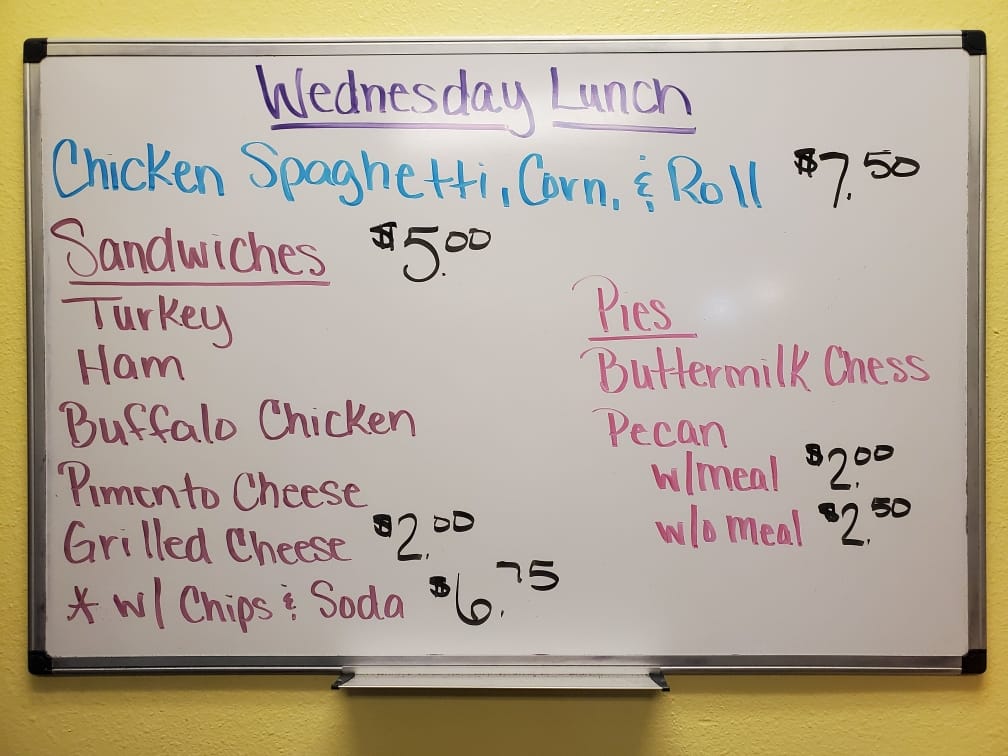 Wednesday Lunch
Chicken Spaghetti, Corn, & Roll $7.50
Sandwiches $5.00
Turkey
Ham
Buffalo Chicken
Pimento Cheese
Grilled Cheese $2.00
* w/ Chips & Soda $6.75
Pies
Buttermilk Chess
Pecan
w/meal $2.00
w/o meal $2.50